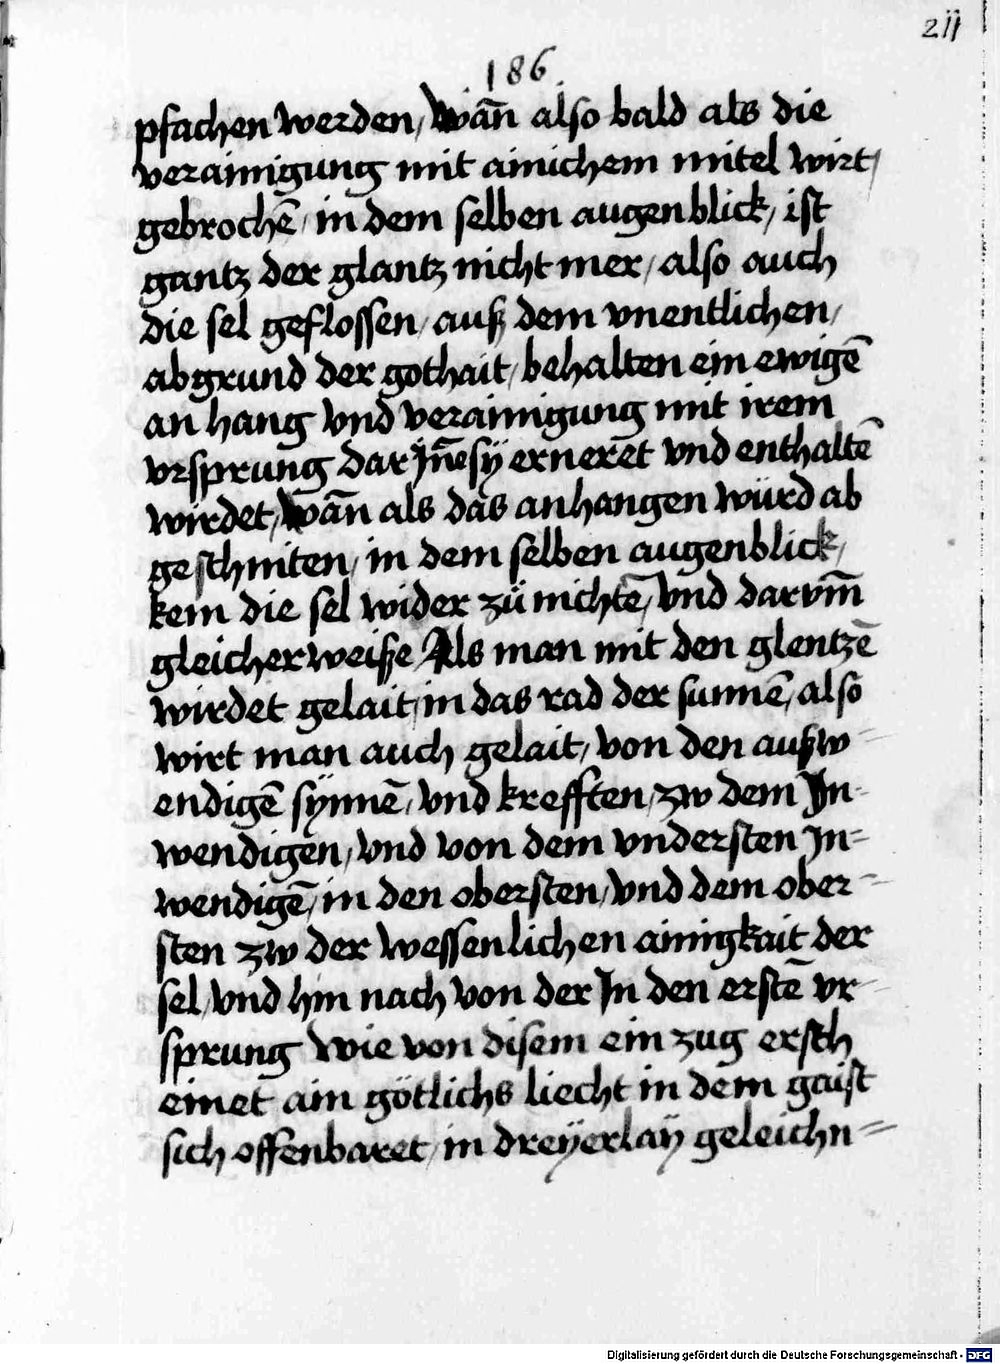 211
186
pfachen werden, wan̄ also bald als die
verainigung mit ainichem mitel wirt,
gebrochē, in dem selben augenblick, ist
gantz der glantz nicht mer, also auch
die sel geflossen, auß dem vnentlichen,
abgrund der gothait, behalten ein ewigē
an hang vnd verainigung mit irem
vrsprung dar Jn̄e sÿ erneret vnd enthaltē
wirdet, wan̄ als das anhangen würd ab
geschniten, in dem selben augenblick,
kem die sel wider zü nichtē, vnd darvm̄
gleicher weiße Als man mit den glentzē
wirdet gelait, in das rad der sunnē, also
wirt man auch gelait, von den außw-
endigē synnē, vnd krefften, zw dem Jn-
wendigen, vnd von dem vndersten Jn=
wendigē, in den obersten, vnd dem ober=
sten zw der wessenlichen ainigkait der
sel, vnd hin nach von der Jn den erstē vr-
sprung Wie von disem ein zug ersch
einet ain götlichs liecht in dem gaist
sich offenbaret, in dreÿerlaÿ geleichn=
Digitalisierung gefördert durch die Deutsche Forschungsgemeinschaft - DFG